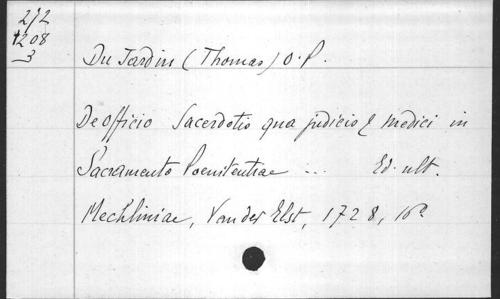 272
1208
3
Du Jardin (Thomas) O. P.
De Officio Sacerdotis qua judicis & medici in
Sacramento Poenitentiae ... Ed. ult.
Mechliniae, Van der Elst, 1728, 16°